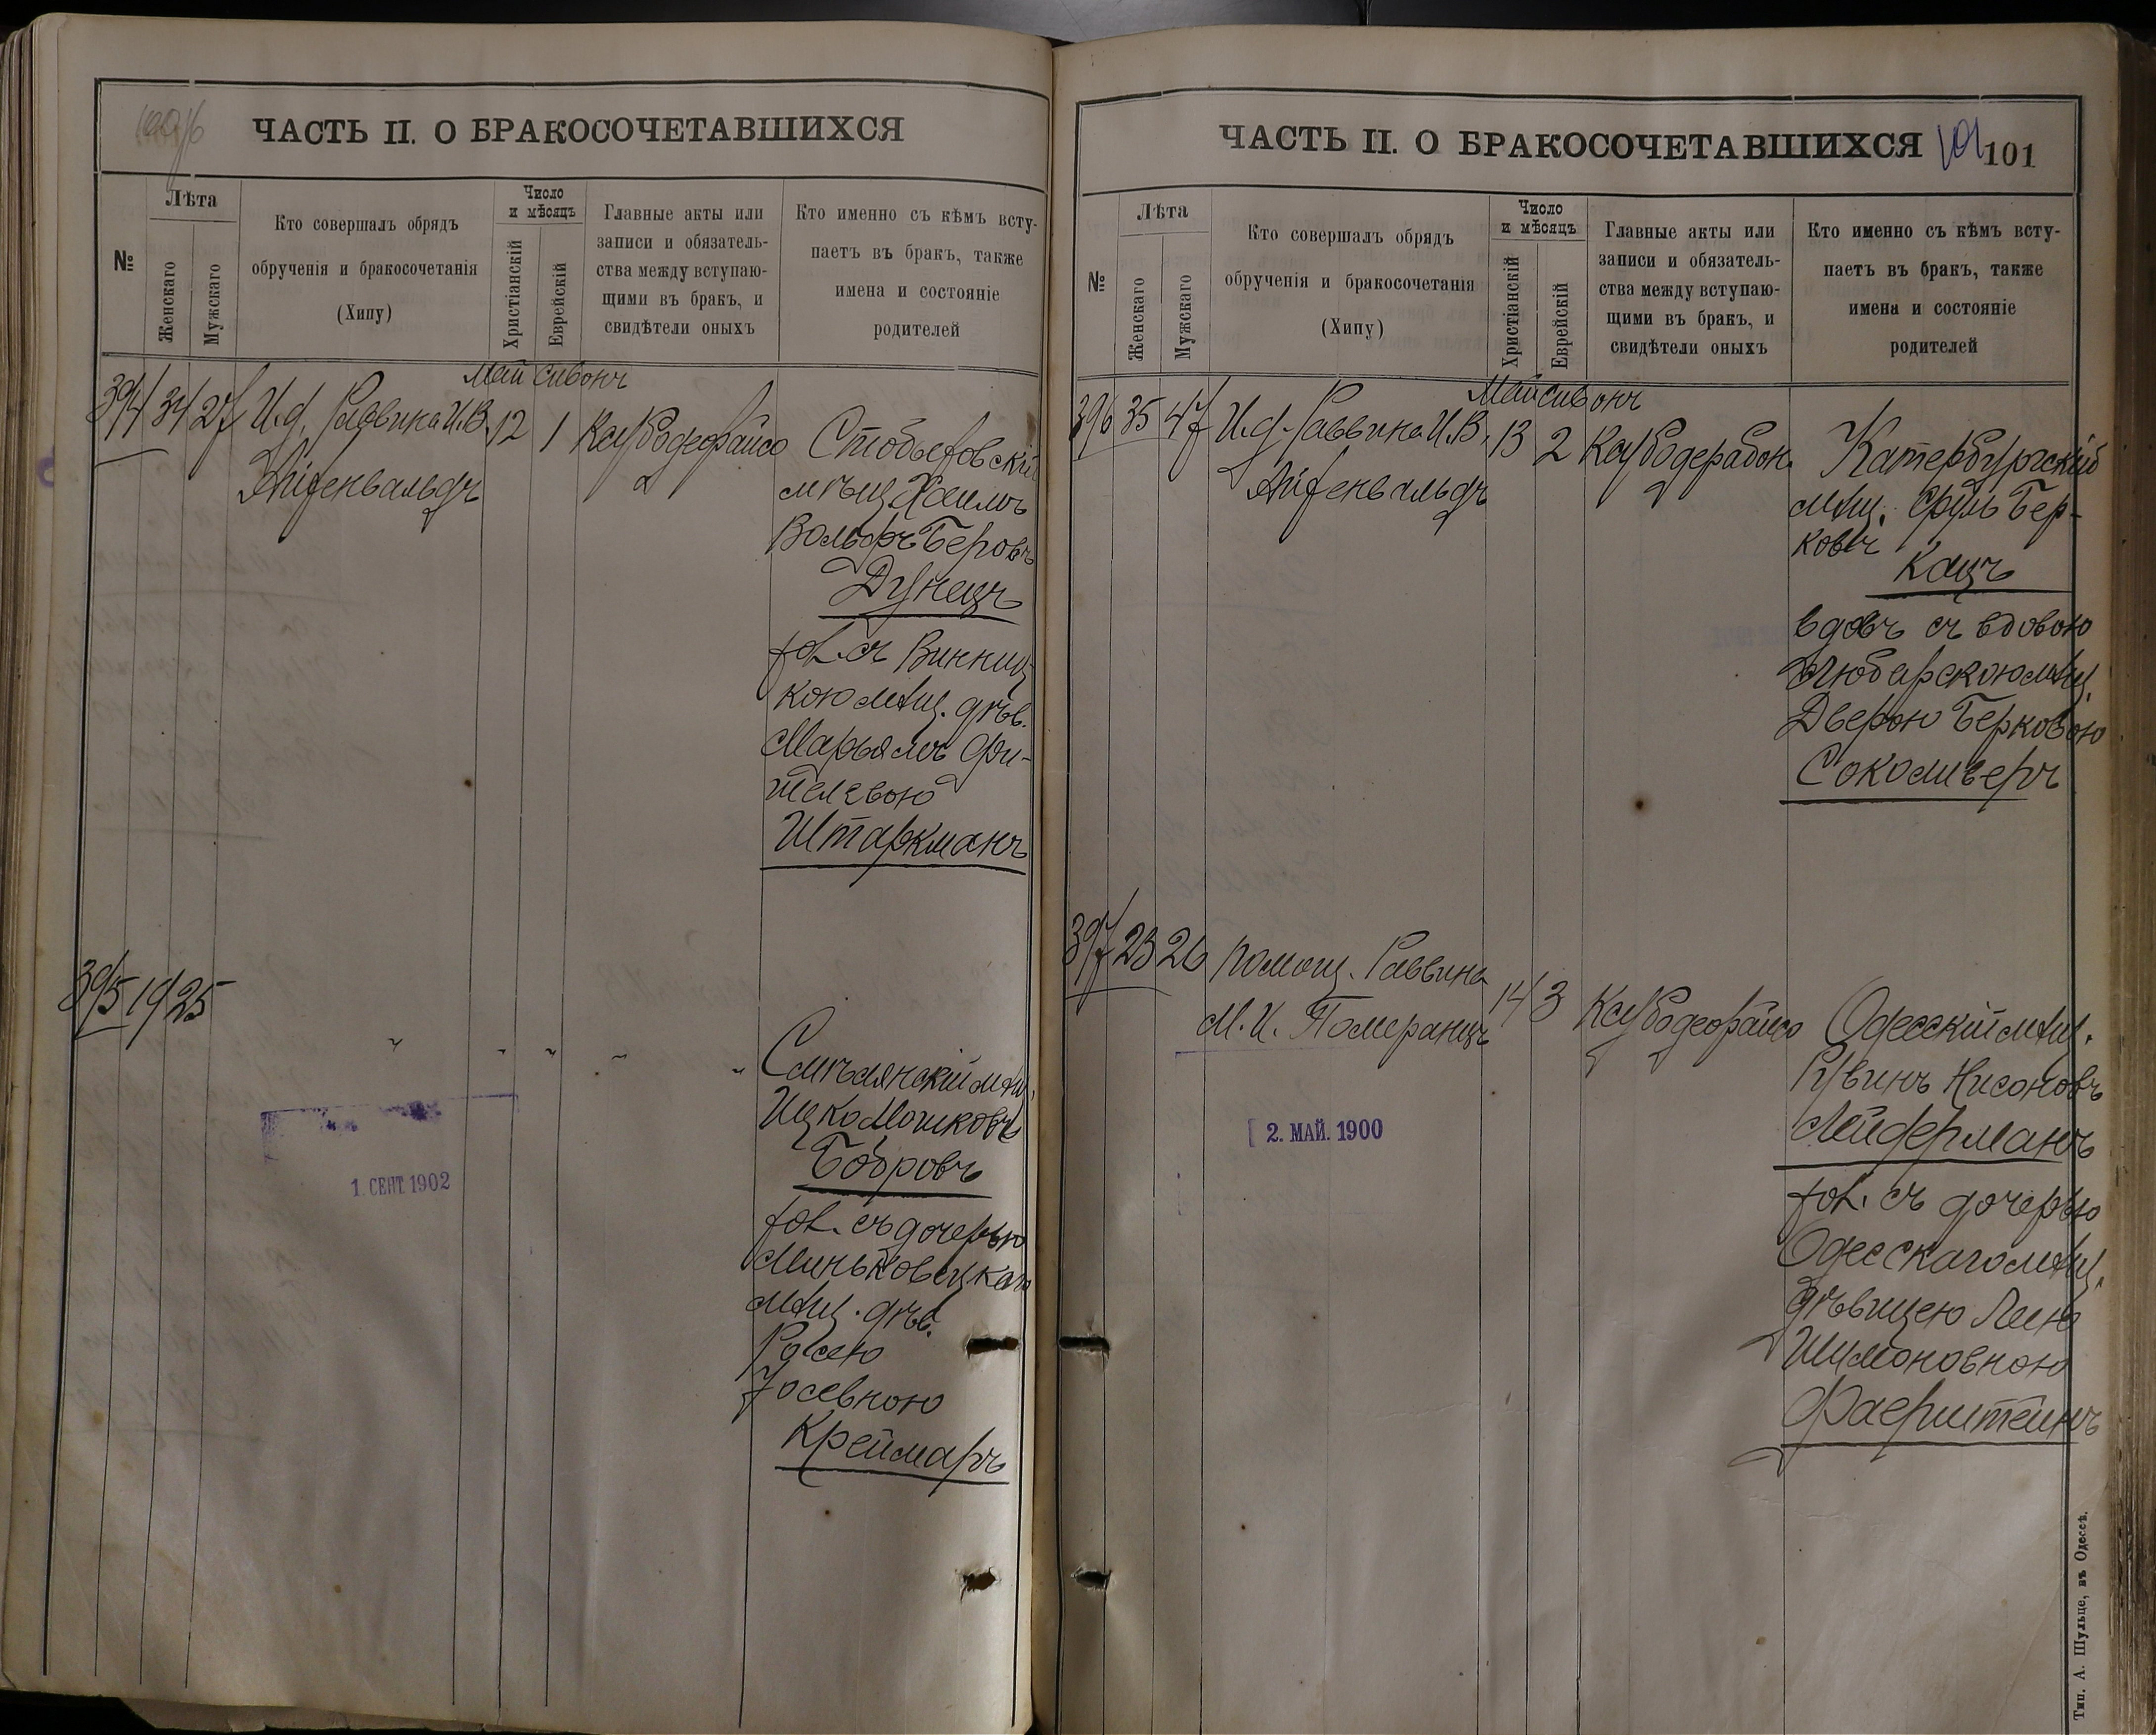 ЧАСТЬ II. О БРАКОСОЧЕТАВШИХСЯ
№
Лѣта
Женскаго
Мужскаго
Кто совершалъ обрядъ
обрученія и бракосочетанія
(Хипу)
Число
и мѣсяцъ
Христіанскій
Еврейскій
Главные акты или
записи и обязатель-
ства между вступаю-
щими въ бракъ, и
свидѣтели оныхъ
Кто именно съ кѣмъ всту-
паетъ въ бракъ, также
имена и состояніе
родителей
Май Сивонъ
394 34 27 И.д. Раввина И.В. 12 1
Айзенвальдъ
мѣщ. Хаимъ
Вольфъ Беровъ
Дунецъ
хол. съ Винниц
кою мѣщ. дѣв.
Марьямъ
Штаркманъ
395 19 25
мѣщ.
Ицко Мошковъ
Бобровъ
хол. съ дочерью
Миньковецкаго
мѣщ. дѣв.
Росею
Іосевною
Креймаръ
1. СЕНТ. 1902
ЧАСТЬ II. О БРАКОСОЧЕТАВШИХСЯ 101 101
№
Лѣта
Женскаго
Мужскаго
Кто совершалъ обрядъ
обрученія и бракосочетанія
(Хипу)
Число
и мѣсяцъ
Христіанскій
Еврейскій
Главные акты или
записи и обязатель-
ства между вступаю-
щими въ бракъ, и
свидѣтели оныхъ
Кто именно съ кѣмъ всту-
паетъ въ бракъ, также
имена и состояніе
родителей
Май Сивонъ
396 35 47 И.д. Раввина И.В. 13 2
Айзенвальдъ
Катербургскій
мѣщ. Сруль Бер-
ковъ
Кацъ
вдовъ съ вдовою
Любарскою мѣщ.
Дверою Берковою
Соколиверъ
397 23 26 Помощ. Раввина
М. И. Померанцъ 14 3
Одесскій мѣщ.
Рувинъ Нисоновъ
Лейдерманъ
хол. съ дочерью
Одесскаго мѣщ.
дѣвицею Леею
Шимоновною
Фаерштейнъ
2. МАЙ. 1900
Тип. А. Шульце, въ Одессѣ.